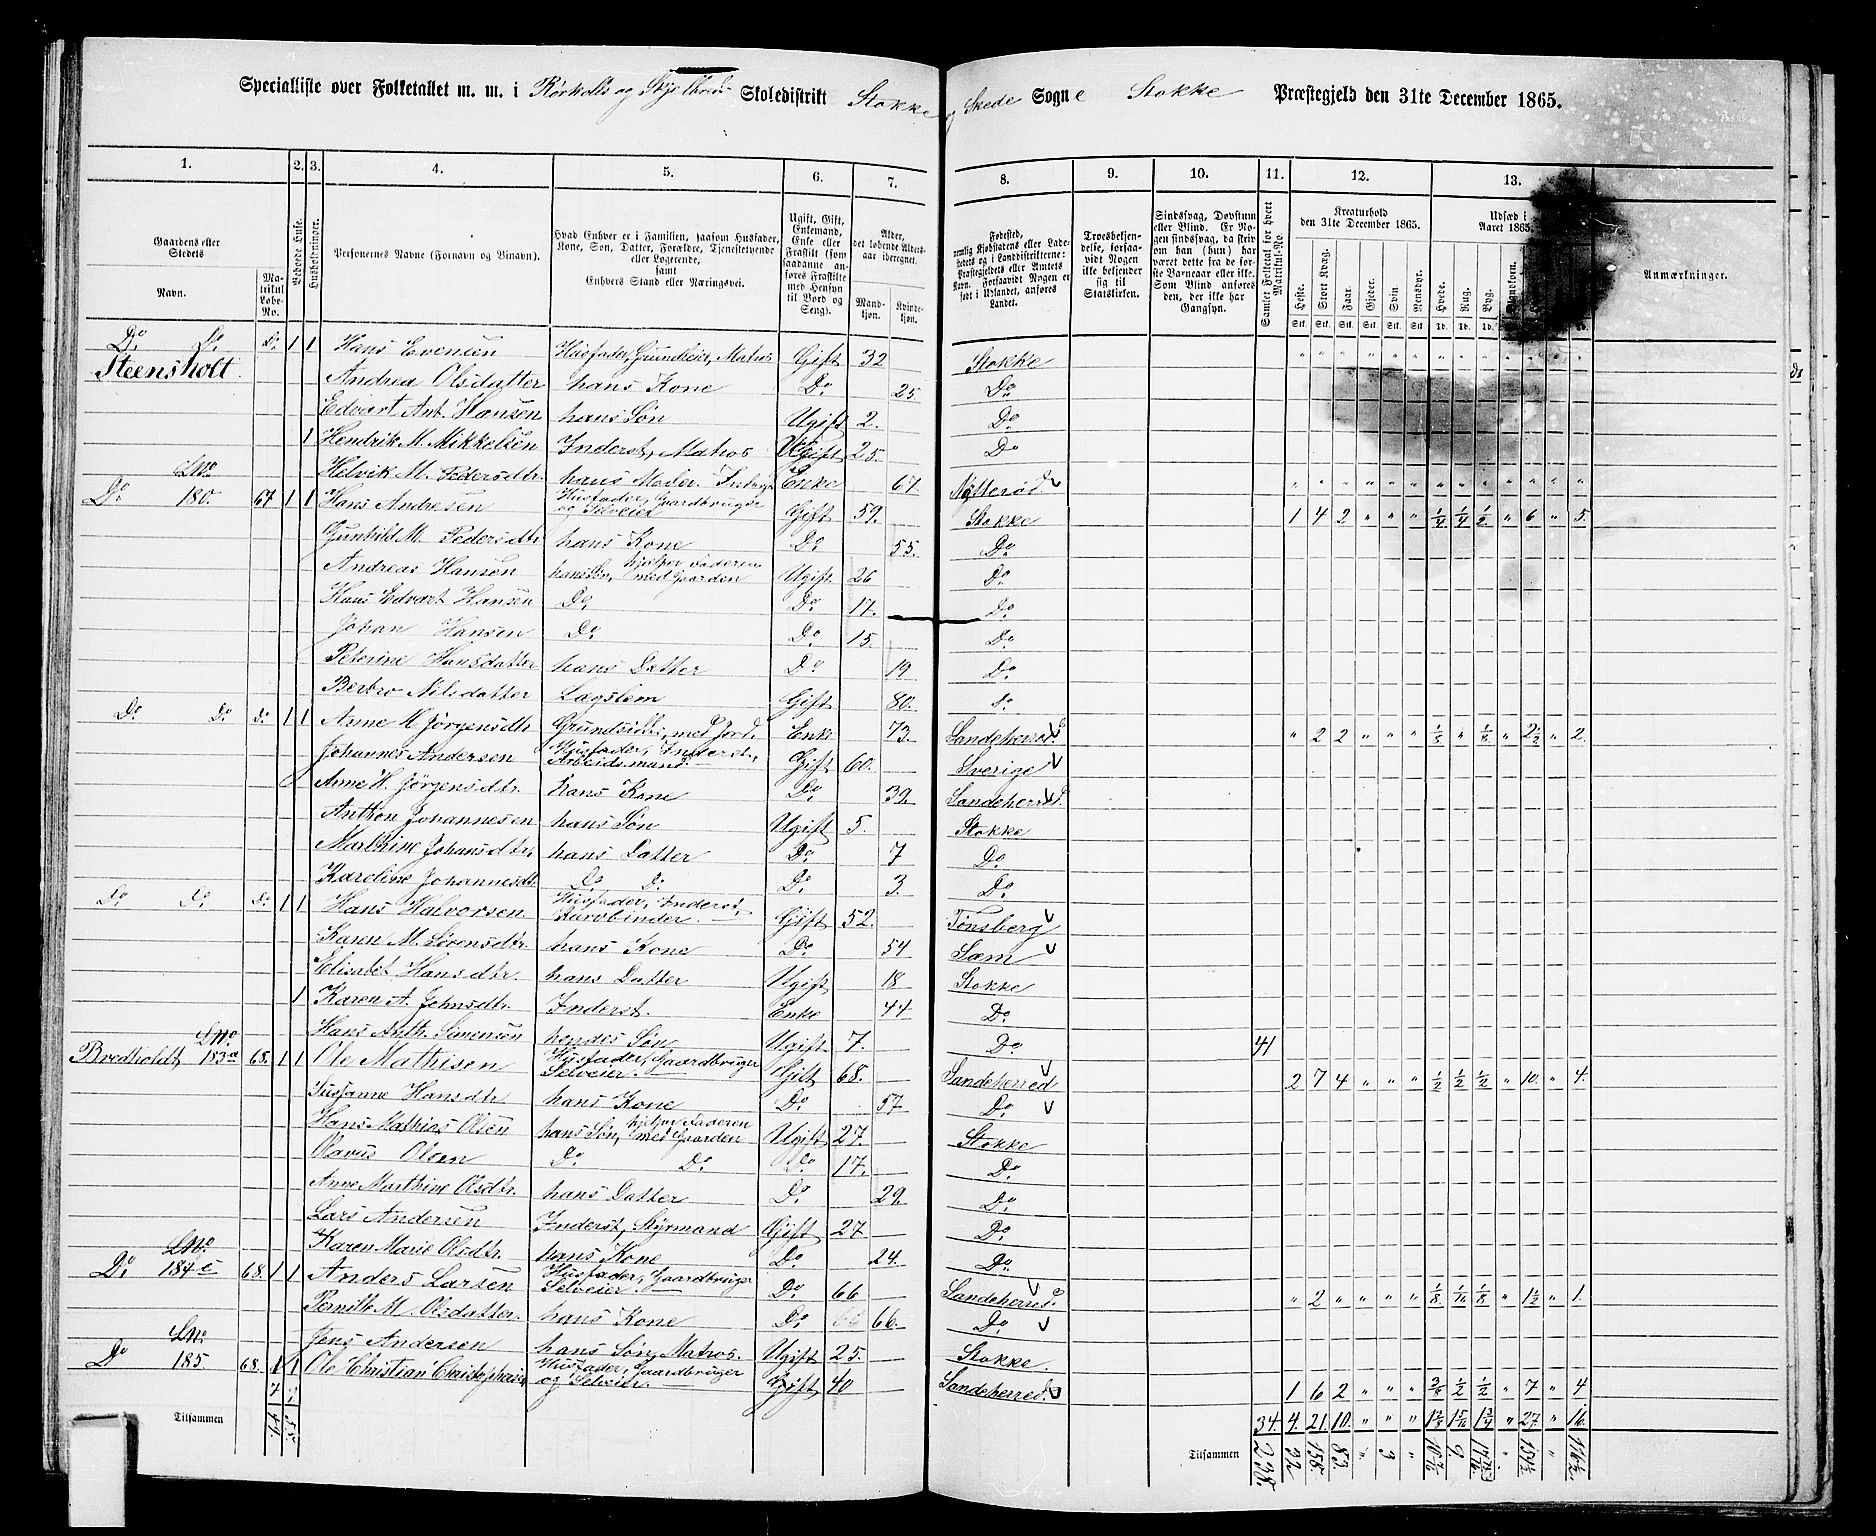 Specialliste over Folketallet m. m. i Rørkolls og Skjelbred Skoledistrikt Stokke og Skede Sogne Stokke Præstegjeld den 31te December 1865.
1. 2. 3. 4. 5. 6. 7. 8. 9. 10. 11. 12. 13.
Gaardens eller Stedets Navn. Matrikul Løbe-No. Beboede Huse. Husholdninger. Personernes Navne (Fornavn og Tilnavn).
Hvad Enhver er i Familien, saasom Husfader, Kone, Søn, Datter, Forældre, Tjenestetyende eller Logerende, samt Enhvers Stand eller Næringsvei.
Ugift, Gift, Enkemand, Enke eller Fraskilt (som saadanne anføres Fraskilte med Hensyn til Bord og Seng).
Alder, det løbende Alders-aar iberegnet. Mandkjøn. Kvindekjøn.
Troesbekjendelse, forsaavidt Nogen ikke bekjender sig til Statskirken.
Sindssvag, Døvstum eller Blind.
Samlet Folketal for hvert Matrikul-No.
Kreaturhold den 31te December 1865. Heste. Stort Kvæg. Faar. Gjeder. Svin. Rensdyr.
Udsæd i Aaret 1865. Hvede. Rug. Byg.
Anmærkninger.
Do. Do. Do. 1 1 Hans Evensen Husfader, Grundleier, Matros Gift 32 Stokke
Steensholt
Andrea Olsdatter hans Kone Do. 25 Do.
Edvart Ant. Hansen hans Søn Ugift 2. Do.
1 Hendrik M. Mikkelsen Inderst, Matros Ugift 25. Do
Helvik M. Pedersdtr. hans Moder. Enke 67 Nøtterød
Do. LNo 180. 67 1 1 Hans Andresen Husfader, Gaardbruger og Selveier Gift 59. Stokke 1 4 2 " " " 1/4 1/4 1/2 " 6 " 5.
Gunhild M. Pedersdtr hans Kone Do. 55. Do.
Andreas Hansen hans Søn, hjelper Faderen med Gaarden Ugift 26 Do.
Hans Edvart Hansen Do. Do. 17. Do.
Johan Hansen Do. Do. 15. Do.
Peterine Hansdatter hans Datter Do 19 Do.
Berbro Nilsdatter Lægslem Gift 80. Do.
Do. Do. Do. 1 1 Anne M Jørgensdtr. med Jord. Enke 73. Sandeherred 2 2 " " " 1/8 " 1/8 " 2 1/2 " 2.
Johannes Andersen Husfader, Inderst, Arbeidsmand. Gift 60. Sverige
Anne H. Jørgensdtr. hans Kone Do. 39. Sandeherred
Anthon Johannesen hans Søn Ugift 5. Stokke
Marthine Johansdtr. hans Datter Do. 7 Do.
Karoline Johannesdtr. Do. Do. Do. 3. Do.
Do. Do. Do. 1 1 Hans Halvorsen Husfader, Inderst, Kurvbinder. Gift 52. Tønsberg
Karen M. Sørensdtr. hans Kone Do. 54 Sæm
Elisabet Hansdtr. hans Datter Ugift 18 Stokke
1 Karen A. Johnsdtr. Inderst. Enke 44 Do.
Hans Anth. Simensen hendes Søn Ugift 7. Do. 41
Bredholdt LNo 183a 68. 1 1 Ole Mathisen Husfader, Gaardbruger Selveier. Gift 68. Sandeherred 2 7 4 " " " 1/2 1/2 1/2 " 10. " 4.
Susanne Hansdtr. hans Kone Do. 57 Do.
Hans Mathias Olsen hans Søn, hjelper Faderen med Gaarden Ugift 27. Stokke
Olavus Olsen Do. Do. Do. 17. Do.
Anne Marthine Olsdtr. hans Datter Do. 29. Do.
Lars Andersen Inderst, Styrmand Gift 27 Do.
Karen Marie Olsdtr. hans Kone Do. 24. Do.
Do. LNo. 184c 68. 1 1 Anders Larsen Husfader, Gaardbruger Selveier. Do. 66 Sandeherred " 2 " " " " 1/8 1/16 1/8 " 1 1/2 " 1.
Pernille M. Olsdatter. hans Kone Do. 66. Do.
Jens Andersen hans Søn, Matros. Ugift 25. Stokke.
Do LNo. 185 68. 1 1 Ole Christian Christophersen Husfader, Gaardbruger og Selveier. Gift 40 Sandeherred. 1 6 2 " " " 3/8 1/2 1/2 " 7 " 4
Tilsammen 34. 4. 21. 10. " " " 1 3/4 " 27. " 16.
Tilsammen 238. 32 158. 83. " 3 "